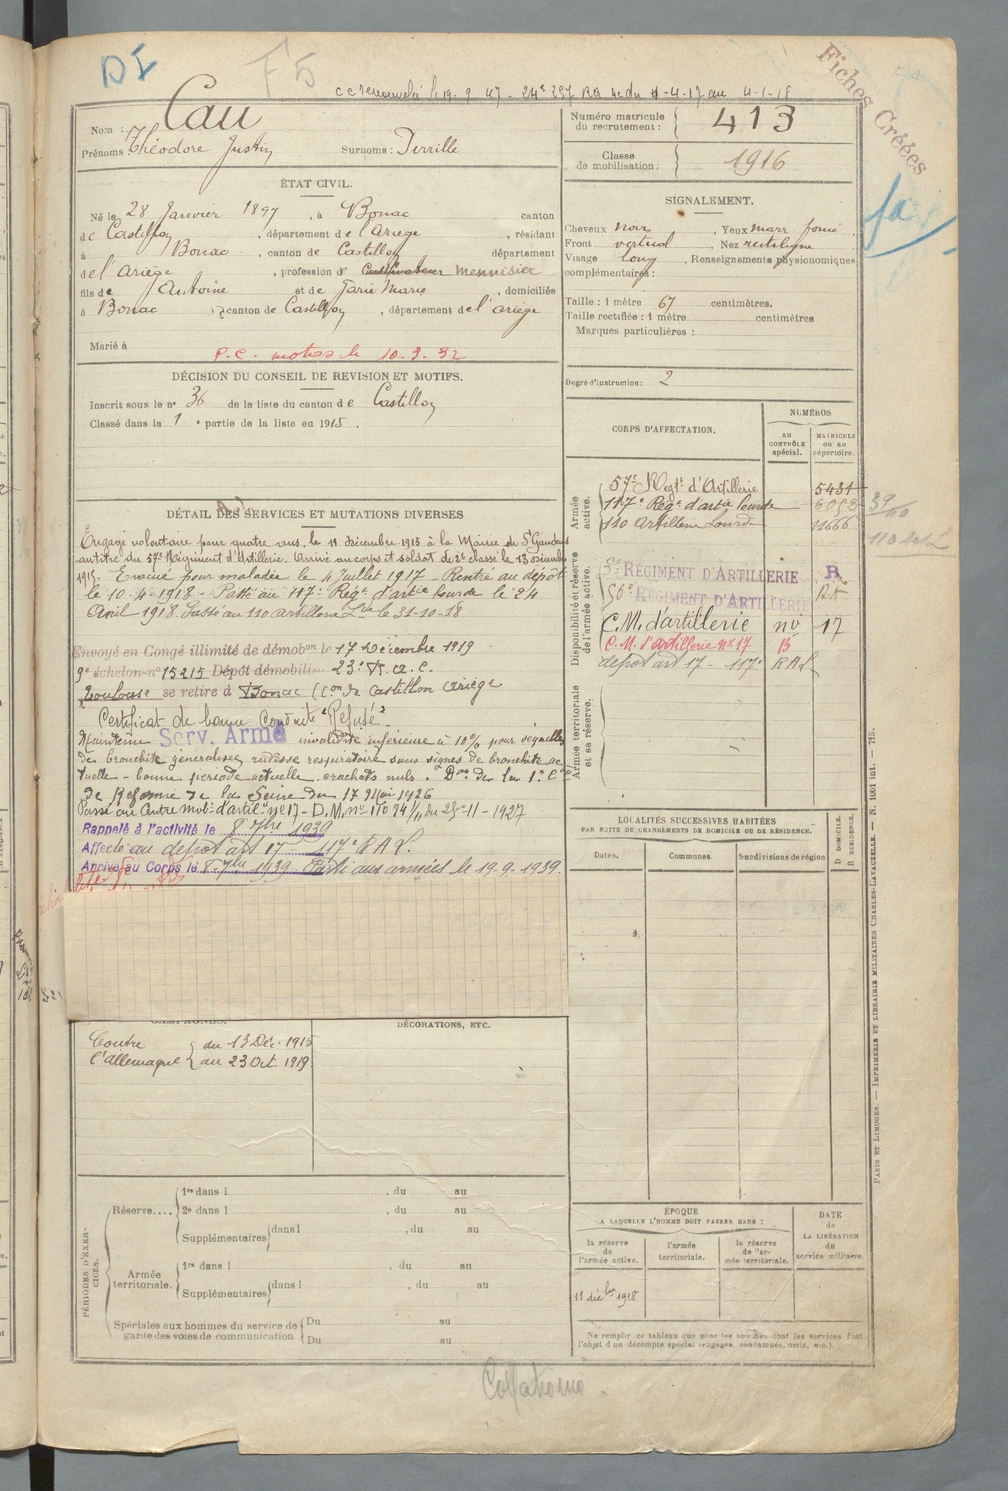 DI
F5
Fiches Créées
Cau
Nom :
Prénoms : Théodore Justin Surnoms : Terrille
Numéro matricule du recrutement : 413
Classe de mobilisation : 1916
ÉTAT CIVIL.
Né le 28 Janvier 1897, à Bonac canton
de Castillon, département de l'Ariège, résidant
à Bonac, canton de Castillon département
de l'Ariège, profession de Cultivateur mennisier
fils de Antoine et de Marie, domiciliés
à Bonac canton de Castillon, département de l'ariège
Marié à
P.C. motos le 10.3.32
SIGNALEMENT.
Cheveux noirs, Yeux marr foncé.
Front vertical, Nez rectiligne
Visage long, Renseignements physionomiques
complémentaires :
Taille : 1 mètre 67 centimètres.
Taille rectifiée : 1 mètre centimètres
Marques particulières :
Degré d'instruction : 2
DÉCISION DU CONSEIL DE REVISION ET MOTIFS.
Inscrit sous le n° 36 de la liste du canton de Castillon
Classé dans la 1e partie de la liste en 1915.
DÉTAIL DES SERVICES ET MUTATIONS DIVERSES
Engagé volontaire pour quatre ans, le 11 décembre 1915 à la Mairie de St Gaudens
au titre du 57e Régiment d'Artillerie. Arrivé au corps et soldat de 2e classe le 13 décembre
1915. Evacué pour maladie le 4 Juillet 1917 - Rentré au dépôt
le 10-4-1918 - Passé au 117e Régt d'artie Lourde le 24
Avril 1918. Passé au 110 artillerie Lde le 31-10-18
Envoyé en Congé illimité de démobon le 17 Décembre 1919
9e échelon n° 15215 Dépôt démobilis. 23e R.a.c.
Toulouse se retire à Bonac Con de Castillon Ariège
Certificat de bonne Conduite "Refusé".
Maintenu Serv. Armé invalidité inférieure à 10% pour séquelles
de bronchite généralisée, rudesse respiratoire sous signes de bronchite ac
tuelle - bonne période actuelle. crachats nuls. Don de la 1e Con
de Réforme de la Seine du 17 Mai 1926
Passé au Centre mobon d'artie n° 17 - D.M. n° 11094 1/11 du 25-11-1927
Rappelé à l'activité le 8 7bre 1939
Affecté au dépôt art 17 117e R.A.L.
Arrivé au Corps le 8 7bre 1939 Parti aux armées le 19-9-1939.
CAMPAGNES.
Contre l'Allemagne du 13 Déc. 1915
au 23 Oct. 1919
DÉCORATIONS, ETC.
CORPS D'AFFECTATION.
NUMÉROS
AU CONTRÔLE spécial.
MATRICULE OU AU répertoire.
Armée active.
57e Régt d'Artillerie 5431
117e Régt d'artie Lourde
110 Artillerie Lourde 11666
110 Art L
Disponibilité et réserve de l'armée active.
RÉGIMENT D'ARTILLERIE R
RÉGIMENT D'ARTILLERIE
C.M. d'artillerie n° 17
C.M. d'artillerie n° 17 B
dépôt art 17 - 117e R.A.L.
Armée territoriale et sa réserve.
LOCALITÉS SUCCESSIVES HABITÉES
PAR SUITE DE CHANGEMENTS DE DOMICILE OU DE RÉSIDENCE.
Dates.
Communes.
Subdivisions de région
D DOMICILE.
R RÉSIDENCE.
PÉRIODES D'EXERCICES.
Réserve.... 1re dans l , du au
2e dans l , du au
Supplémentaires dans l , du au
Armée territoriale. 1re dans l , du au
Supplémentaires dans l , du au
Spéciales aux hommes du service de garde des voies de communication Du au
Du au
ÉPOQUE
A LAQUELLE L'HOMME DOIT PASSER DANS :
la réserve de l'armée active.
l'armée territoriale.
la réserve de l'armée territoriale.
DATE de LA LIBÉRATION du service militaire.
11 décbre 1918
Ne remplir ce tableau que pour les hommes dont les services font
l'objet d'un décompte spécial (engagés, condamnés, omis, etc.).
PARIS ET LIMOGES. — IMPRIMERIE ET LIBRAIRIE MILITAIRES CHARLES-LAVAUZELLE. — N. 1601 int. — 715.